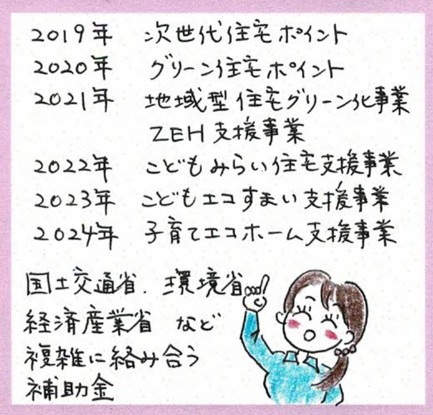 2019年 次世代住宅ポイント
2020年 グリーン住宅ポイント
2021年 地域型住宅グリーン化事業
ZEH支援事業
2022年 こどもみらい住宅支援事業
2023年 こどもエコすまい支援事業
2024年 子育てエコホーム支援事業
国土交通省、環境省
経済産業省 など
複雑に絡み合う
補助金